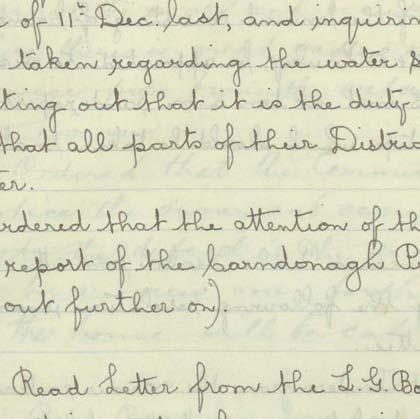 of 11th Dec. last, and inquirin
taken regarding the water s
ting out that it is the duty
that all parts of their Distric
ter.
rdered that the attention of th
report of the Carndonagh B
out further on).
Read Letter from the L.G. Bo